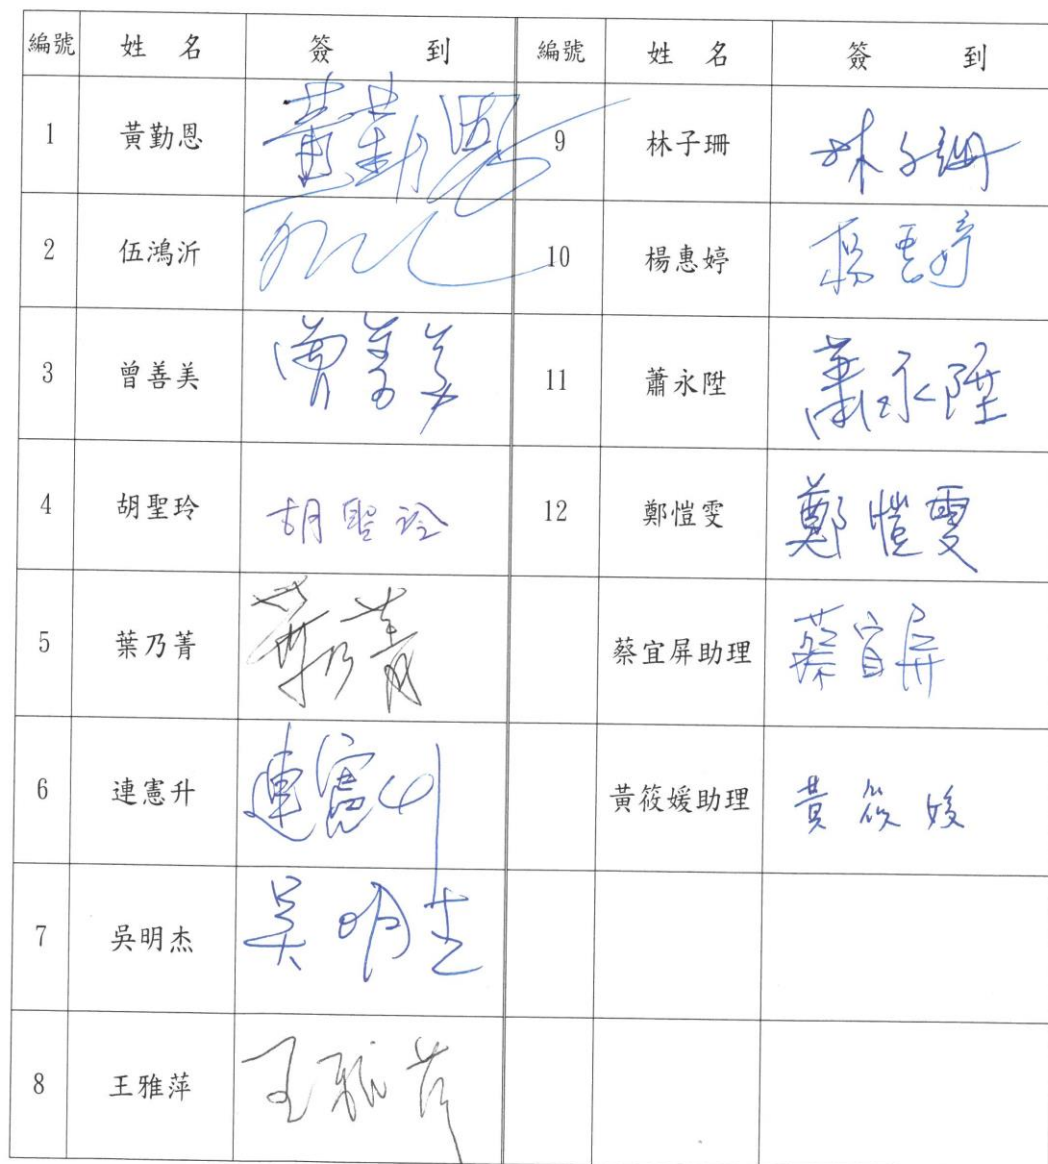 編號 姓名 簽到 編號 姓名 簽到
1 黃勤恩 黃勤恩 9 林子珊 林子珊
2 伍鴻沂 10 楊惠婷 楊惠婷
3 曾善美 曾善美 11 蕭永陞 蕭永陞
4 胡聖玲 胡聖玲 12 鄭愷雯 鄭愷雯
5 葉乃菁 葉乃菁 蔡宜屏助理 蔡宜屏
6 連憲升 連憲升 黃筱媛助理 黃筱媛
7 吳明杰 吳明杰
8 王雅萍 王雅萍